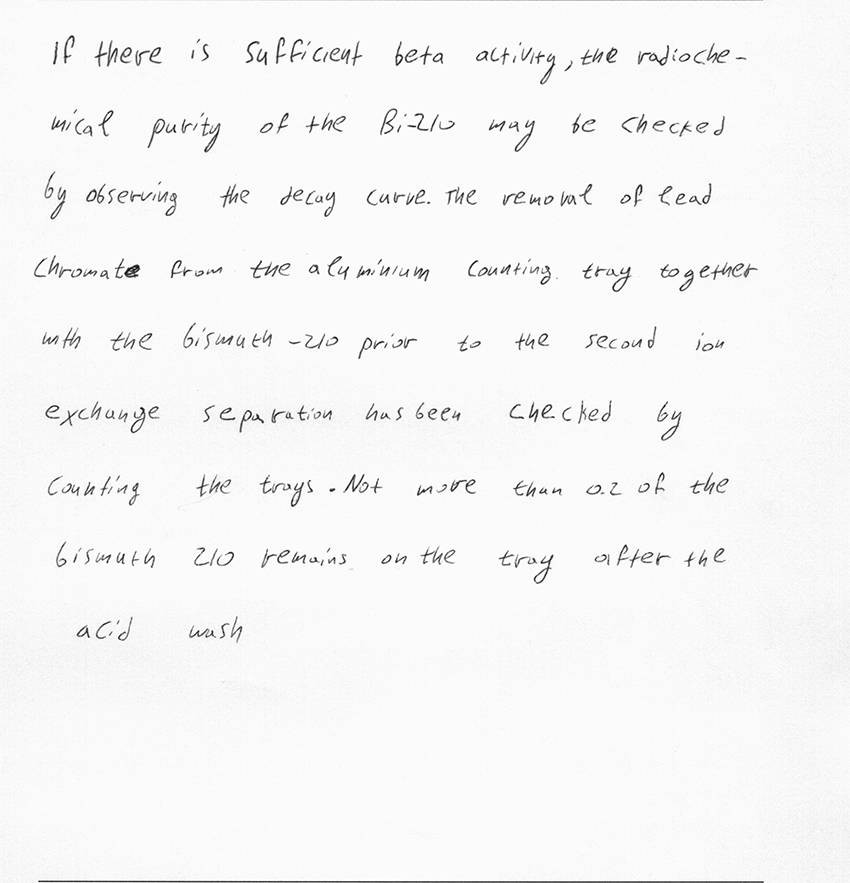 If there is sufficient beta activity, the radioche-
mical purity of the Bi-210 may be checked
by observing the decay curve. The removal of lead
chromate from the aluminium counting tray together
with the bismuth -210 prior to the second ion
exchange separation has been checked by
counting the trays. Not more than 0.2 of the
bismuth 210 remains on the tray after the
acid wash